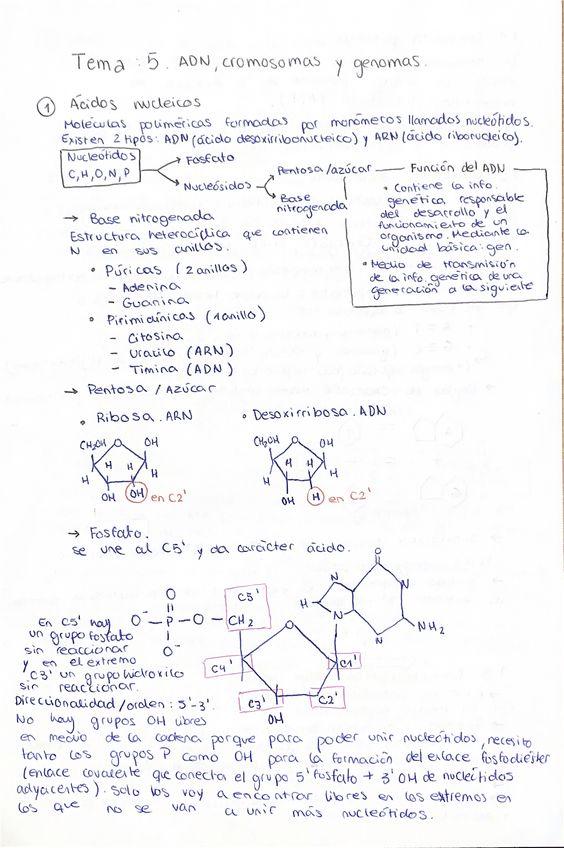 Tema : 5. ADN, cromosomas y genomas.
① Ácidos nucleicos
Moléculas poliméricas formadas por monómeros llamados nucleótidos.
Existen 2 tipos: ADN (ácido desoxirribonucleico) y ARN (ácido ribonucleico).
Nucleótidos
C, H, O, N, P
→ Fosfato
→ Nucleósidos
Pentosa/azúcar
Base
nitrogenada
Función del ADN
• Contiene la info.
genética responsable
del desarrollo y el
funcionamiento de un
organismo. Mediante la
unidad básica: gen.
• Medio de transmisión
de la info. genética de una
generación a la siguiente
→ Base nitrogenada
Estructura heterocíclica que contienen
N en sus anillos.
• Púricas (2 anillos)
- Adenina
- Guanina
• Pirimidínicas (1 anillo)
- Citosina
- Uracilo (ARN)
- Timina (ADN)
→ Pentosa / Azúcar
• Ribosa. ARN
• Desoxirribosa. ADN
CH2OH O OH
H H H H
OH OH en C2'
CH2OH O OH
H H H H
OH H en C2'
→ Fosfato.
se une al C5' y da carácter ácido.
En C5' hay
un grupo fosfato
sin reaccionar
y en el extremo
C3' un grupo hidroxilo
sin reaccionar.
O
O⁻ - P - O - CH2
O⁻
C5'
O
C4'
C1'
C3'
C2'
OH
O
N
N
H
N
N
NH2
Direccionalidad/orden: 5'-3'.
No hay grupos OH libres
en medio de la cadena porque para poder unir nucleótidos, necesito
tanto los grupos P como OH para la formación del enlace fosfodiéster
(enlace covalente que conecta el grupo 5' fosfato + 3' OH de nucleótidos
adyacentes). Solo los voy a encontrar libres en los extremos en
los que no se van a unir más nucleótidos.